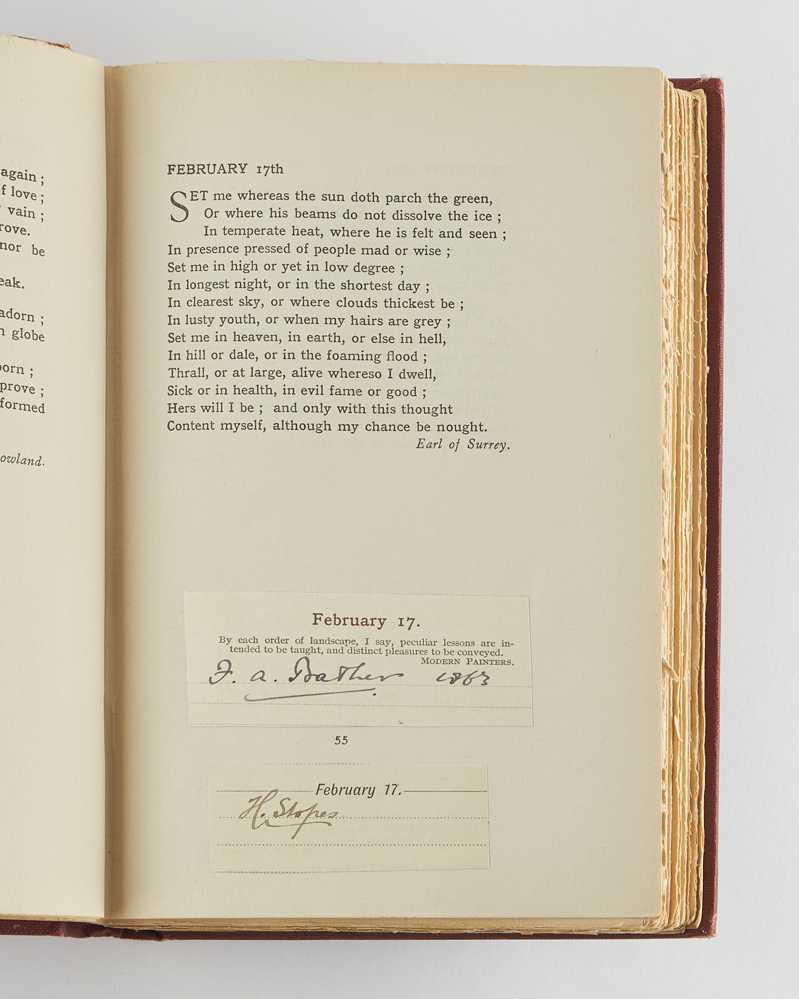 again ;
f love ;
vain ;
rove.
nor be
eak.
adorn ;
n globe
orn ;
prove ;
formed
owland.
FEBRUARY 17th
SET me whereas the sun doth parch the green,
Or where his beams do not dissolve the ice ;
In temperate heat, where he is felt and seen ;
In presence pressed of people mad or wise ;
Set me in high or yet in low degree ;
In longest night, or in the shortest day ;
In clearest sky, or where clouds thickest be ;
In lusty youth, or when my hairs are grey ;
Set me in heaven, in earth, or else in hell,
In hill or dale, or in the foaming flood ;
Thrall, or at large, alive whereso I dwell,
Sick or in health, in evil fame or good ;
Hers will I be ; and only with this thought
Content myself, although my chance be nought.
Earl of Surrey.
February 17.
By each order of landscape, I say, peculiar lessons are in-
tended to be taught, and distinct pleasures to be conveyed.
MODERN PAINTERS.
F. A. Bather 1863
55
February 17.
H. Stopes